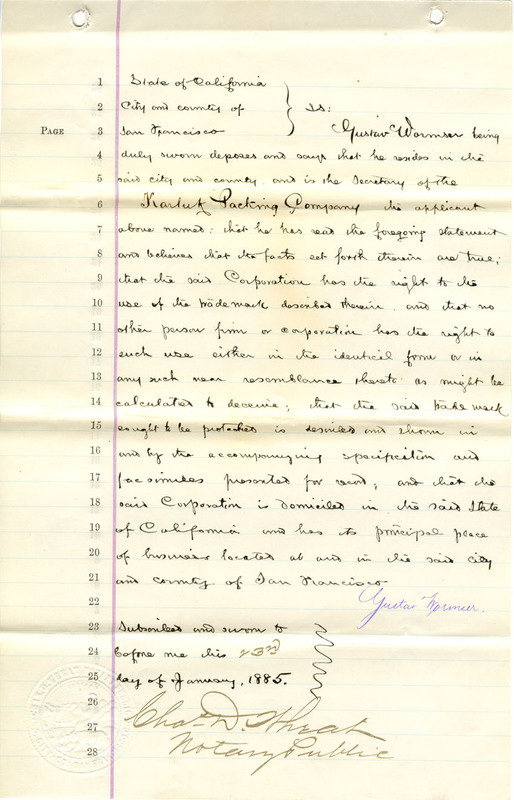 1 State of California
2 City and county of } ss:
PAGE 3 San Francisco Gustav Wormser being
4 duly sworn deposes and says that he resides in the
5 said city and county and is the Secretary of the
6 Karluk Packing Company the applicant
7 above named; that he has read the foregoing statement
8 and believes that the facts set forth therein are true;
9 that the said Corporation has the right to the
10 use of the trademark described therein and that no
11 other person firm or corporation has the right to
12 such use either in the identical form or in
13 any such near resemblance thereto as might be
14 calculated to deceive; that the said trade mark
15 sought to be protected is described and shown in
16 and by the accompanying specification and
17 facsimiles presented for record; and that the
18 said Corporation is domiciled in the said State
19 of California and has its principal place
20 of business located at and in the said city
21 and county of San Francisco
22 Gustav Wormser.
23 Subscribed and sworn to
24 before me this 23rd
25 day of January, 1885.
26
27 Chas. D.
28 Notary Public